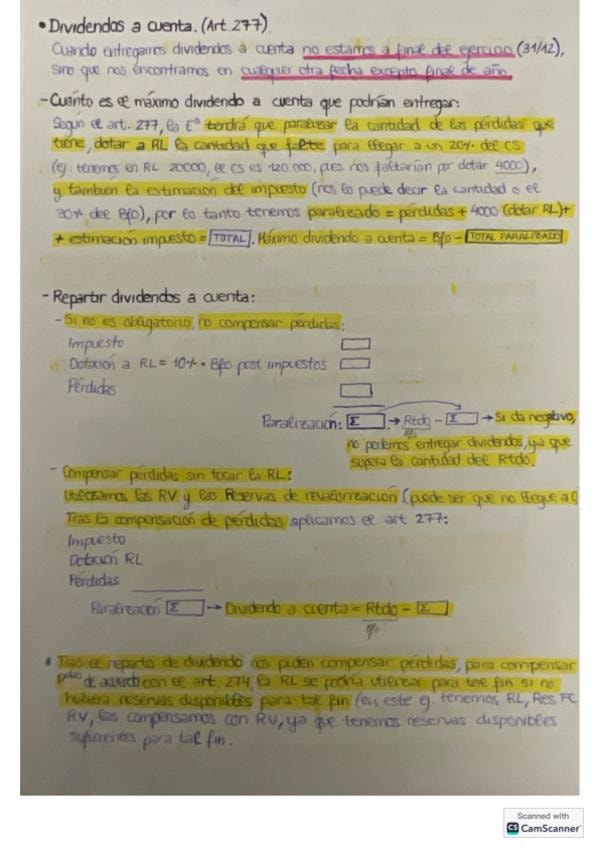 • Dividendos a cuenta. (Art. 277)
Cuando entregamos dividendos a cuenta no estamos a final del ejercicio (31/12),
sino que nos encontramos en cualquier otra fecha excepto final de año.
- Cuánto es el máximo dividendo a cuenta que podrían entregar:
Según el art. 277, la Eª tendrá que paralizar la cantidad de las pérdidas que
tiene, dotar a RL la cantidad que falte para llegar a un 20% del CS
(ej. tenemos en RL 20000, el CS es 120.000, pues nos faltarían por dotar 4000),
y tambien la estimación del impuesto (nos lo puede decir la cantidad o el
30% del Bfo), por lo tanto tenemos paralizado = perdidas + 4000 (dotar RL)+
+ estimación impuesto = TOTAL. Máximo dividendo a cuenta = Bfo - TOTAL PARALIZADO
- Repartir dividendos a cuenta:
- Si no es obligatorio, no compensar pérdidas:
Impuesto
Dotación a RL = 10% · Bfo post impuestos
Pérdidas
Paralización: Σ → Rtdo - Σ → Si da negativo,
no podemos entregar dividendos, ya que
supera la cantidad del Rtdo.
- Compensar pérdidas sin tocar la RL:
Utilizamos las RV y las Reservas de revalorización (puede ser que no llegue a
Tras la compensación de pérdidas aplicamos el art 277:
Impuesto
Dotación RL
Pérdidas
Paralización Σ → Dividendo a cuenta = Rtdo - Σ
* Tras el reparto de dividendo nos piden compensar pérdidas, para compensar
de acuerdo con el art. 274, la RL se podría utilizar para tal fin si no
hubiera reservas disponibles para tal fin (en este ej. tenemos RL, Res FC
RV, las compensamos con RV, ya que tenemos reservas disponibles
suficientes para tal fin.
Scanned with
CS CamScanner